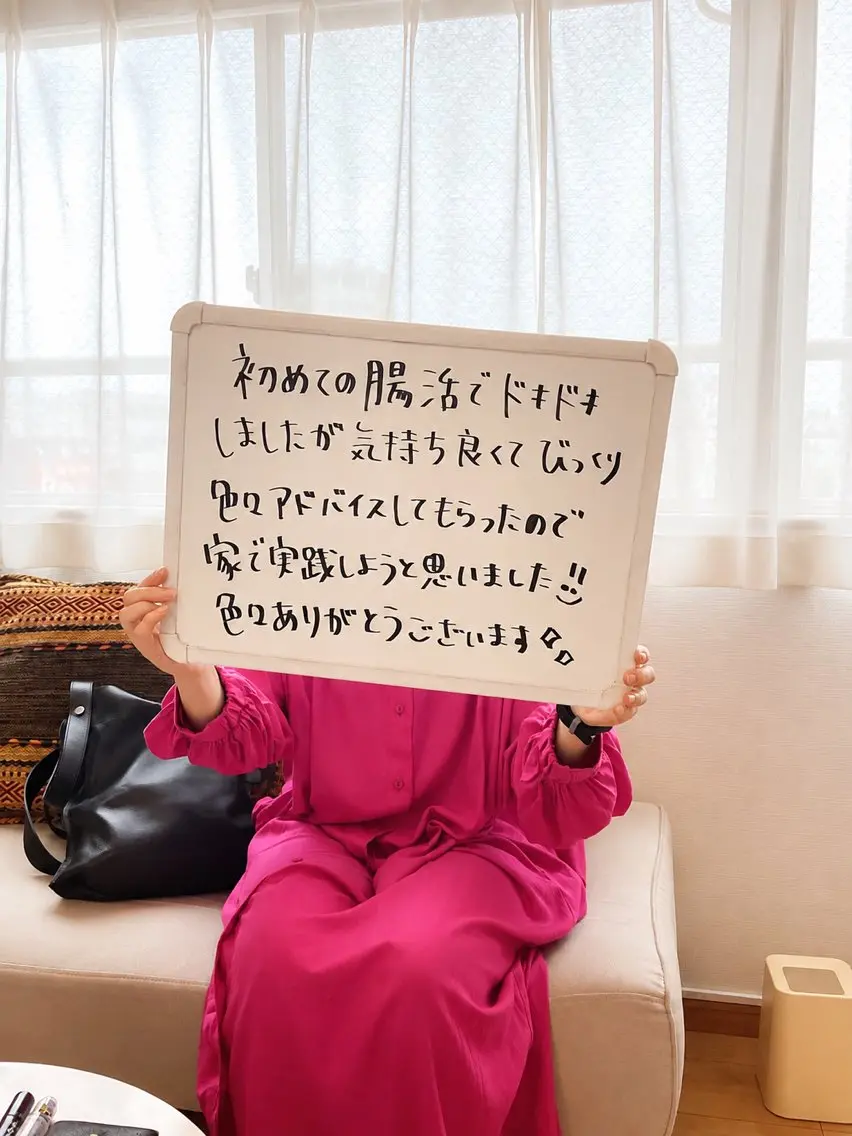 初めての腸活でドキドキ
しましたが気持ち良くてびっくり
色々アドバイスしてもらったので
家で実践しようと思いました!!
色々ありがとうございます